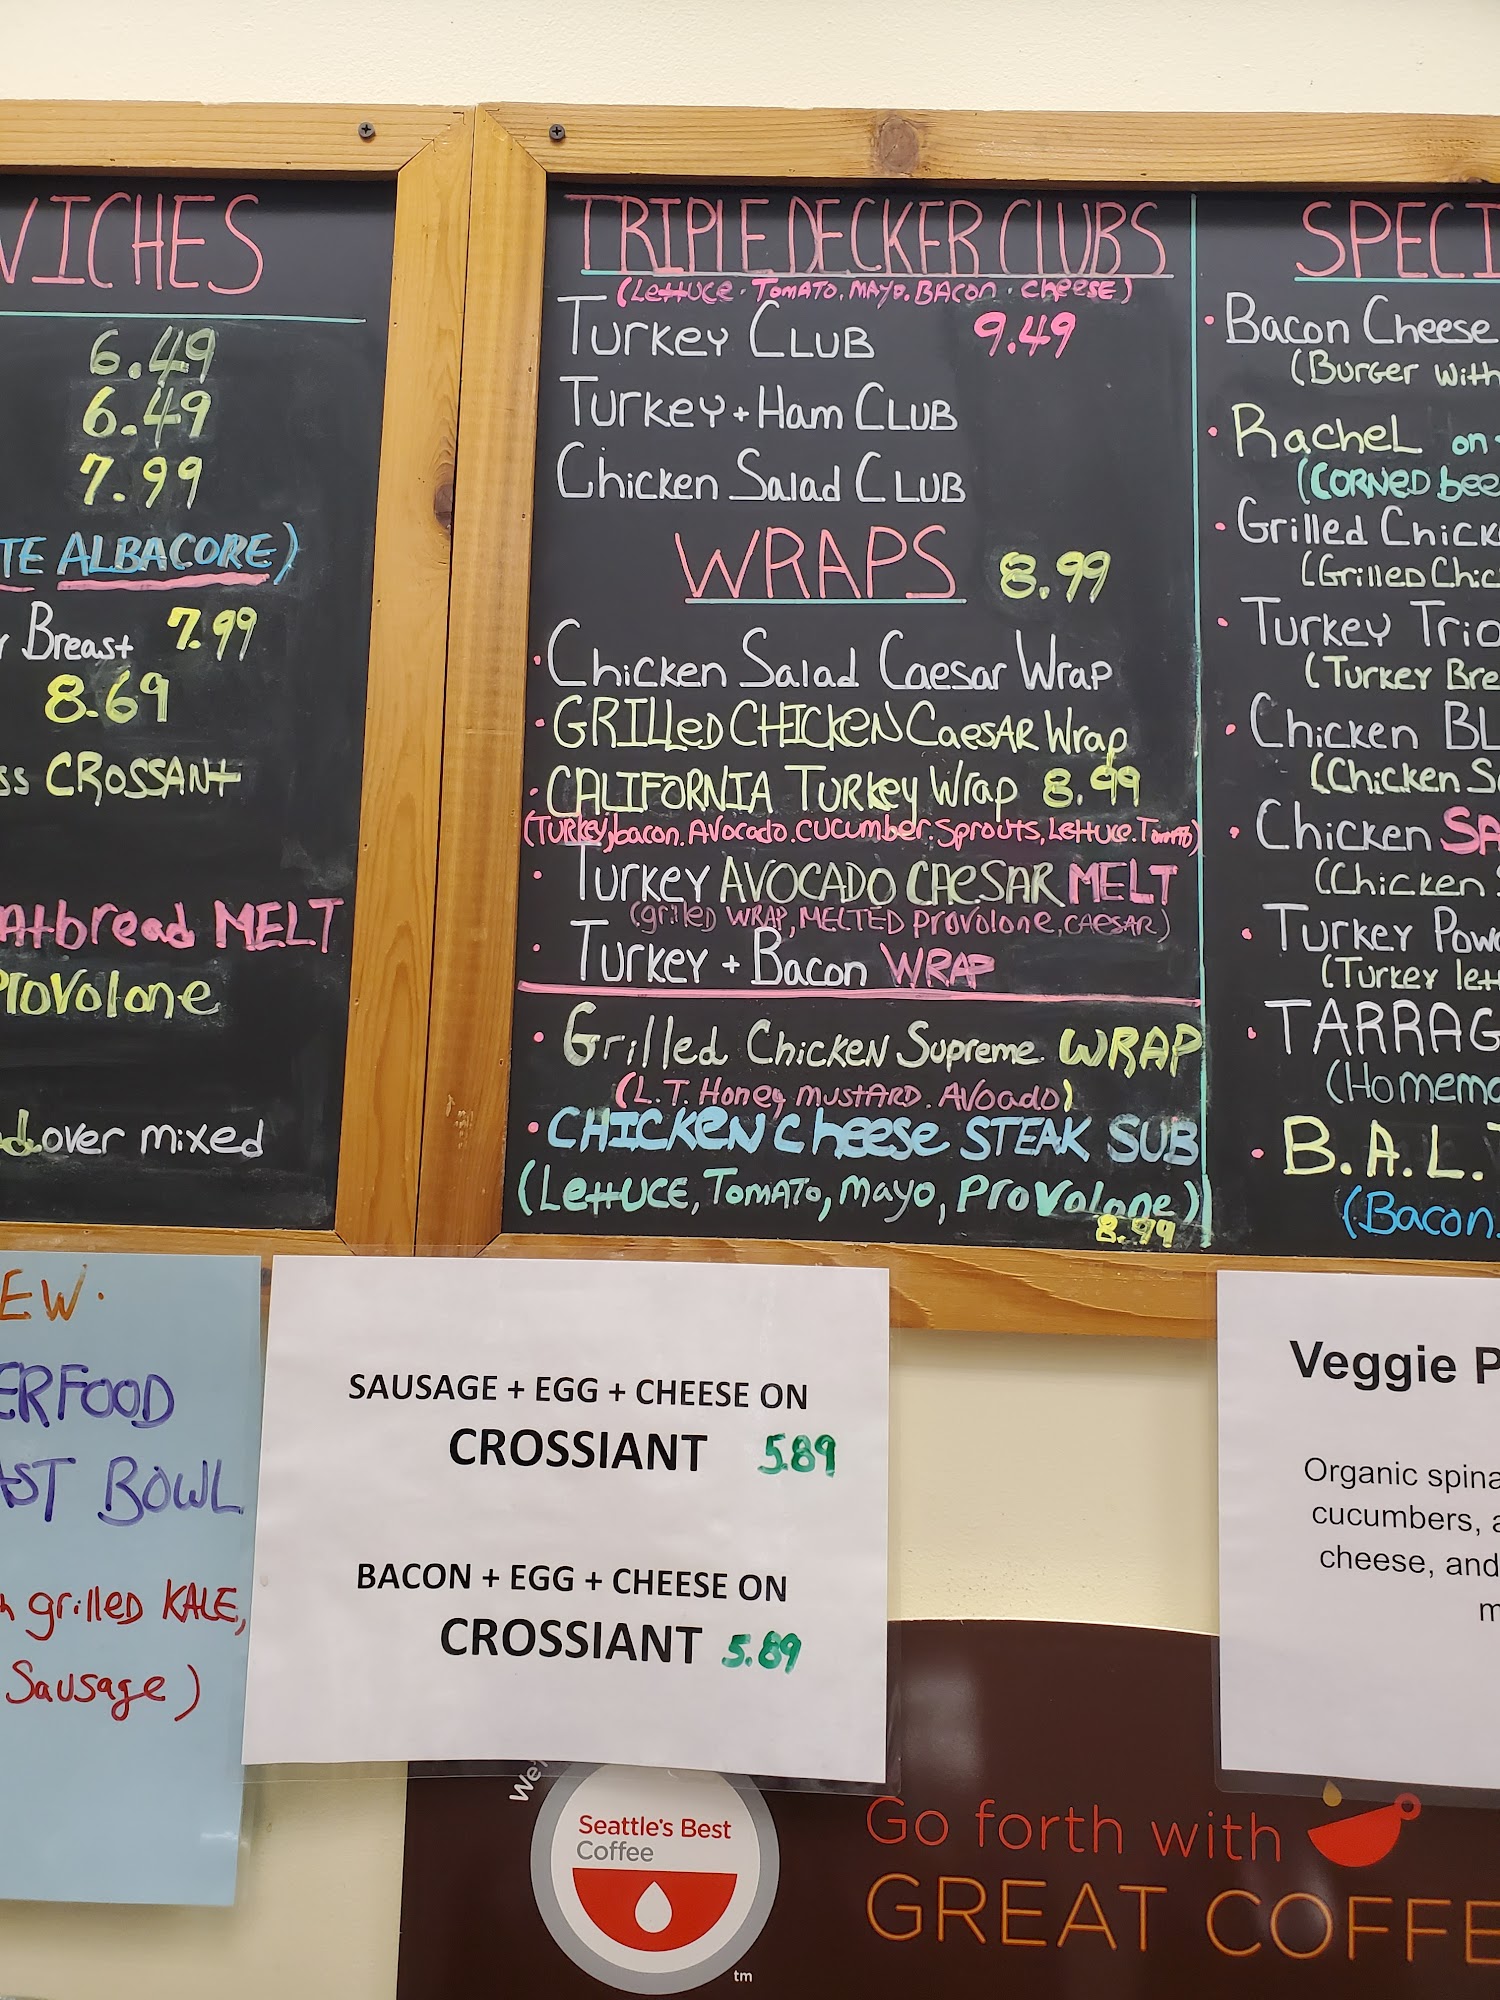 VICHES
6.49
6.49
7.99
TE ALBACORE)
r Breast 7.99
8.69
ss CROSSANT
Atbread MELT
Provolone
d.over mixed
TRIPLE DECKER CLUBS
(Lettuce · Tomato. Mayo. Bacon · cheese)
Turkey CLUB 9.49
Turkey + Ham CLUB
Chicken Salad CLUB
WRAPS 8.99
· Chicken Salad Caesar Wrap
· GRILLeD CHICKeN CaesAR Wrap
· CALIFORNIA Turkey Wrap 8.99
(Turkey, bacon. Avocado. cucumber. Sprouts, Lettuce. Tomato)
· Turkey AVOCADO CAESAR MELT
(grilled WRAP, MELTED Provolone, CAESAR)
· Turkey + Bacon WRAP
· Grilled Chicken Supreme WRAP
(L.T. Honey MUSTARD. Avoado)
· CHICKEN cheese STEAK SUB
(Lettuce, Tomato, mayo, Provolone)
8.99
SPECI
· Bacon Cheese
(Burger with
· Rachel on
(CORNED bee
· Grilled Chick
(Grilled Chic
· Turkey Trio
(Turkey Bre
· Chicken BL
(Chicken S
· Chicken SA
(Chicken
· Turkey Pow
(Turkey lett
· TARRAG
(Homema
· B.A.L.T
(Bacon.
EW.
ERFOOD
AST BOWL
h grilled KALE,
Sausage)
SAUSAGE + EGG + CHEESE ON
CROSSIANT 5.89
BACON + EGG + CHEESE ON
CROSSIANT 5.89
Veggie P
Organic spina
cucumbers, a
cheese, and
m
We'
Seattle's Best
Coffee
tm
Go forth with
GREAT COFFE